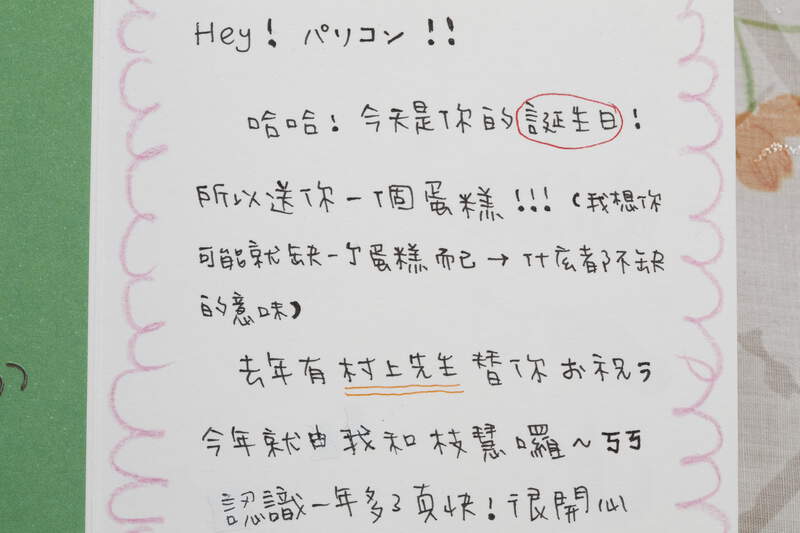 Hey! パリコン!!
哈哈!今天是你的誕生日!
所以送你一個蛋糕!!!(我想你
可能就缺一个蛋糕而已→什庅都不缺
的意味)
去年有村上先生替你お祝う
今年就由我和枝慧囉~ㄎㄎ
認識一年多了真快!很開心